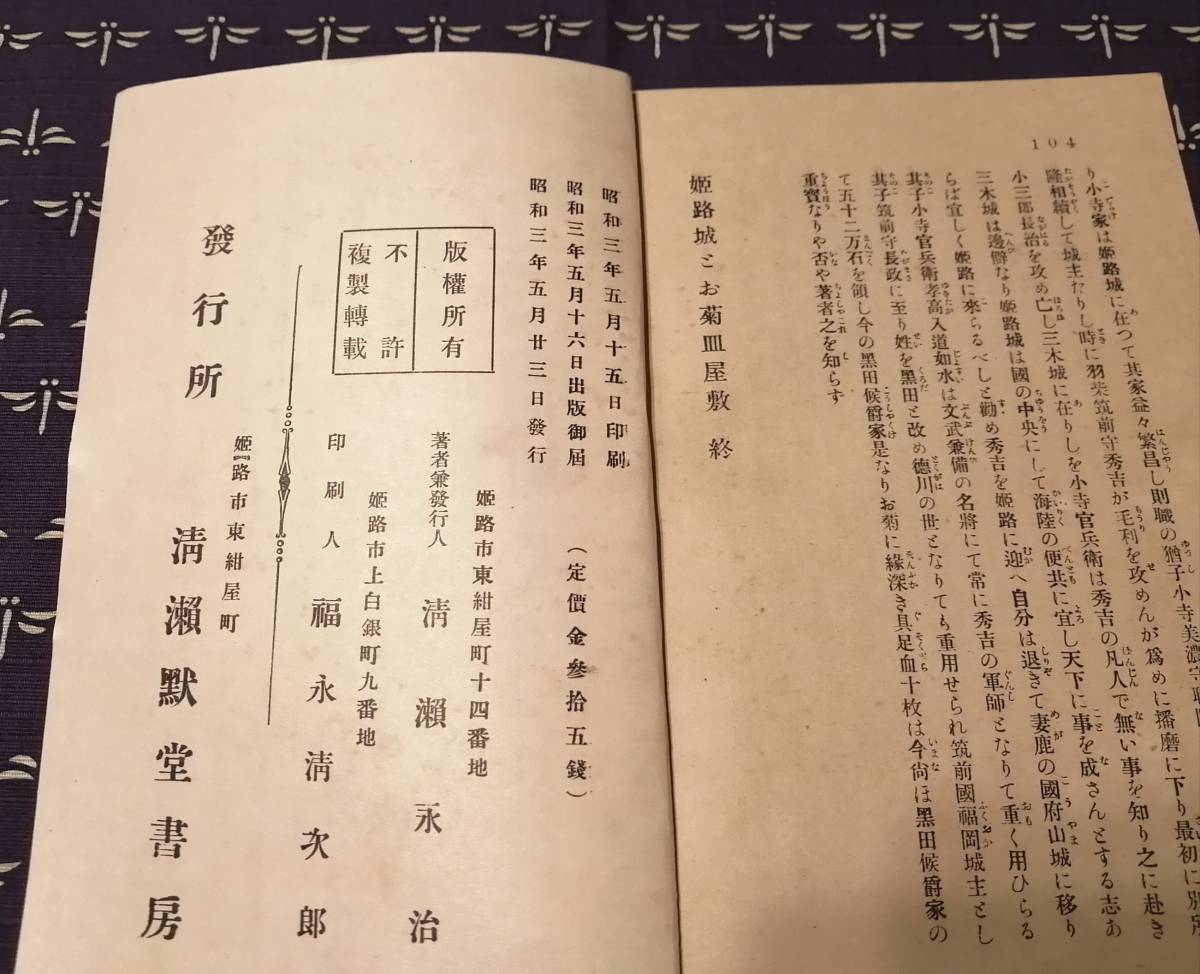 104
り小寺家は姬路城に在つて其家益々繁昌し則職の猶子小寺美濃守職
隆相續して城主たりし時に羽柴筑前守秀吉が毛利を攻めんが爲めに播磨に下り最初に別所
小三郎長治を攻め亡し三木城に在りしを小寺官兵衛は秀吉の凡人で無い事を知り之に赴き
三木城は邊僻なり姬路城は國の中央にして海陸の便共に宜し天下に事を成さんとする志あ
らば宜しく姬路に來らるべしと勸め秀吉を姬路に迎へ自分は退きて妻鹿の國府山城に移り
其子小寺官兵衛孝高入道如水は文武兼備の名將にて常に秀吉の軍師となりて重く用ひらる
其子筑前守長政に至り姓を黑田と改め德川の世となりても重用せられ筑前國福岡城主とし
て五十二万石を領し今の黑田候爵家是なりお菊に緣深き具足皿十枚は今尙ほ黑田候爵家の
重寳なりや否や著者之を知らす
姬路城とお菊皿屋敷　終
昭和三年五月十五日印刷
昭和三年五月十六日出版御屆
昭和三年五月廿三日發行
（定價金參拾五錢）
版權所有
不許
複製轉載
姬路市東紺屋町十四番地
著者兼發行人　淸瀨永治
姬路市上白銀町九番地
印刷人　福永淸次郎
姬路市東紺屋町
發行所　淸瀨默堂書房